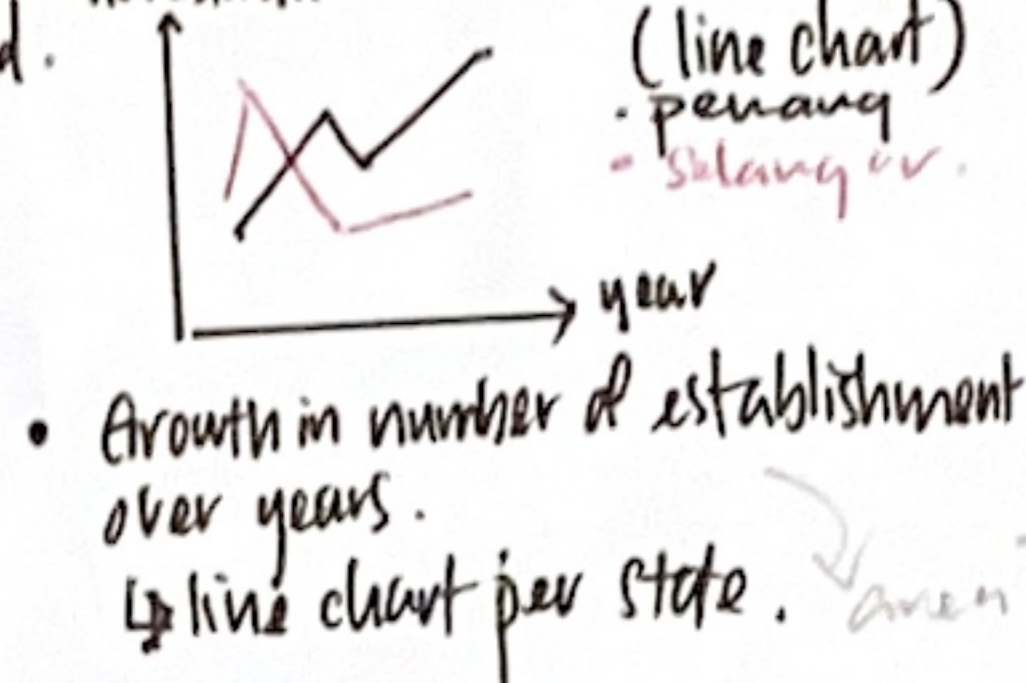 d.
(line chart)
• penang
• Selangor.
year
• Growth in number of establishment
over years.
↳ line chart per state.